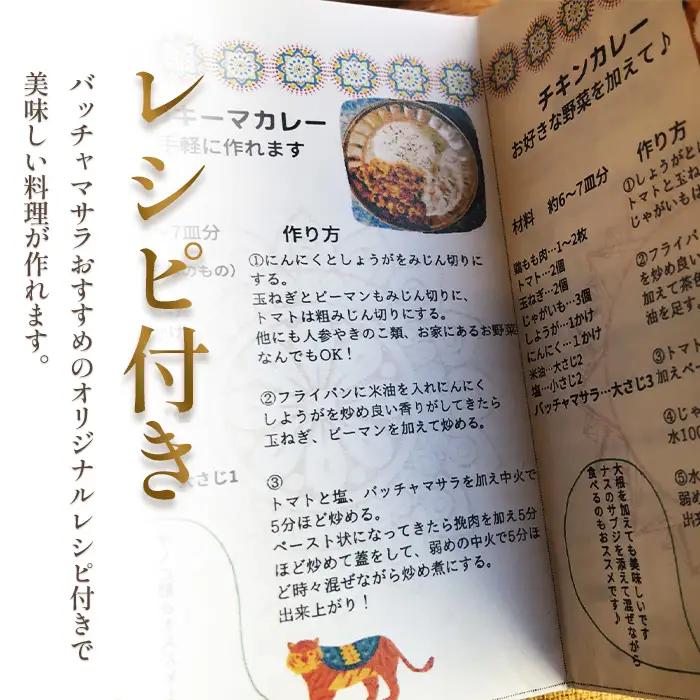 レシピ付き
バッチャマサラおすすめのオリジナルレシピ付きで
美味しい料理が作れます。
キーマカレー
手軽に作れます
7皿分
作り方
①にんにくとしょうがをみじん切りに
する。
玉ねぎとピーマンもみじん切りに、
トマトは粗みじん切りにする。
他にも人参やきのこ類、お家にあるお野菜
なんでもOK!
②フライパンに米油を入れにんにく
しょうがを炒め良い香りがしてきたら
玉ねぎ、ピーマンを加えて炒める。
大さじ1
③
トマトと塩、バッチャマサラを加え中火で
5分ほど炒める。
ペースト状になってきたら挽肉を加え5分
ほど炒めて蓋をして、弱めの中火で5分ほ
ど時々混ぜながら炒め煮にする。
出来上がり!
チキンカレー
お好きな野菜を加えて♪
材料 約6~7皿分
鶏もも肉…1~2枚
トマト…2個
玉ねぎ…2個
じゃがいも…3個
しょうが…1かけ
にんにく…1かけ
米油…大さじ2
塩…小さじ2
バッチャマサラ…大さじ3
作り方
①しょうがと
トマトと玉ね
じゃがいもは
②フライパ
を炒め良い
加えて茶色
油を足す。
③トマト
加えペー
④じゃ
水100
⑤水
弱め
出来
大根を加えても美味しいです
ナスのサブジを添えて混ぜながら
食べるのもおススメです♪